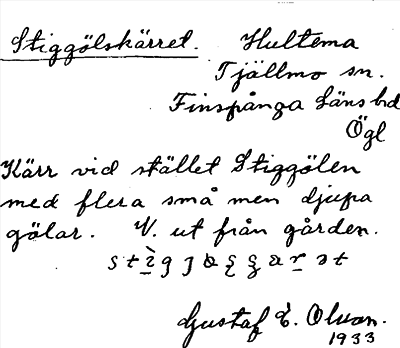 Stiggölskärret. Hultema
Tjällmo sn.
Finspånga läns hd
Ögl
Kärr vid stället Stiggölen
med flera små men djupa
gölar. V. ut från gården.
Gustaf E. Olson.
1933